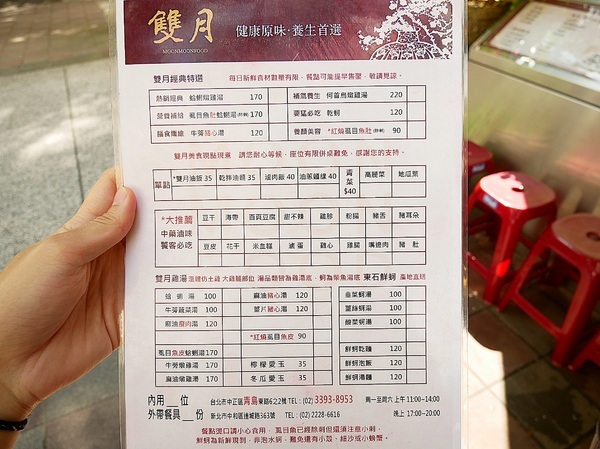 雙月
MOONMOONFOOD
健康原味·養生首選
雙月經典特選 每日新鮮食材數量有限，餐點可能提早售罄，敬請見諒。
熱銷經典 蛤蜊燉雞湯 170 補氣養生 何首烏燉雞湯 220
營養補給 虱目魚肚蛤蜊湯 170 要猛必吃 乾蚵 120
膳食纖維 牛蒡豬心湯 120 養顏美容 *紅燒虱目魚肚 90
雙月美食現點現煮 請您耐心等候，座位有限併桌難免，感謝您的支持。
單點 *雙月油飯 35 乾拌油麵 35 滷肉飯 40 油蔥雞絲 40 青菜 $40 高麗菜 地瓜葉
*大推薦 中藥滷味 饕客必吃
豆干 海帶 百頁豆腐 甜不辣 雞胗 粉腸 豬舌 豬耳朵
豆皮 花干 米血糕 滷蛋 雞心 雞腸 嘴邊肉 豬肚
雙月雞湯 溫體仿土雞 大雞腿部位 湯品類皆為雞湯底，蚵為柴魚湯底 東石鮮蚵 產地直送
蛤蜊湯 100 麻油豬心湯 120 韭菜蚵湯 100
牛蒡蔬菜湯 100 薑片豬心湯 120 薑絲蚵湯 100
麻油瘦肉湯 120 酸菜蚵湯 100
*紅燒虱目魚皮 90
虱目魚皮蛤蜊湯 170 鮮蚵乾麵 120
牛蒡燉雞湯 170 檸檬愛玉 35 鮮蚵泡飯 120
麻油燉雞湯 170 冬瓜愛玉 35 鮮蚵湯麵 120
內用__位 台北市中正區青島東路6之2號 TEL：(02) 3393-8953 周一至周六 上午 11:00~14:00
外帶餐具__份 新北市中和區連城路363號 TEL：(02) 2228-6616 晚上 17:00~20:00
餐點燙口請小心食用，虱目魚已經除刺但還須注意小刺，
鮮蚵為新鮮現剝，非泡水蚵，難免還有小殼、細沙或小螃蟹。